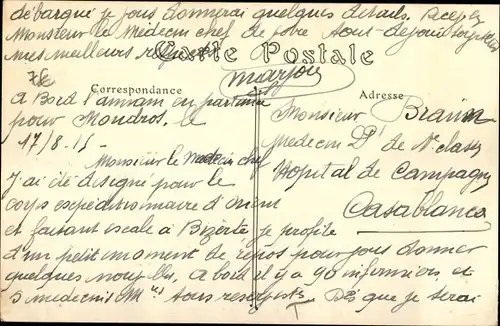 débarqué je vous donnerai quelques détails. Acceptez
Monsieur le Médecin chef de votre tout dévoué
mes meilleurs
Carte Postale
Correspondance
Adresse
à Bord l'amiram en partance
pour Mondros. le
17/8-15
Monsieur le Médecin chef
J'ai été désigné pour le
corps expéditionnaire d'orient
et faisant escale à Bizerte je profite
d'un petit moment de repos pour vous donner
quelques nouvelles. A bord il y a 90 infirmiers et
5 médecins tous Dès que je serai
Monsieur Braun
Médecin de 1e classe
Hôpital de Campagne
Casablanca